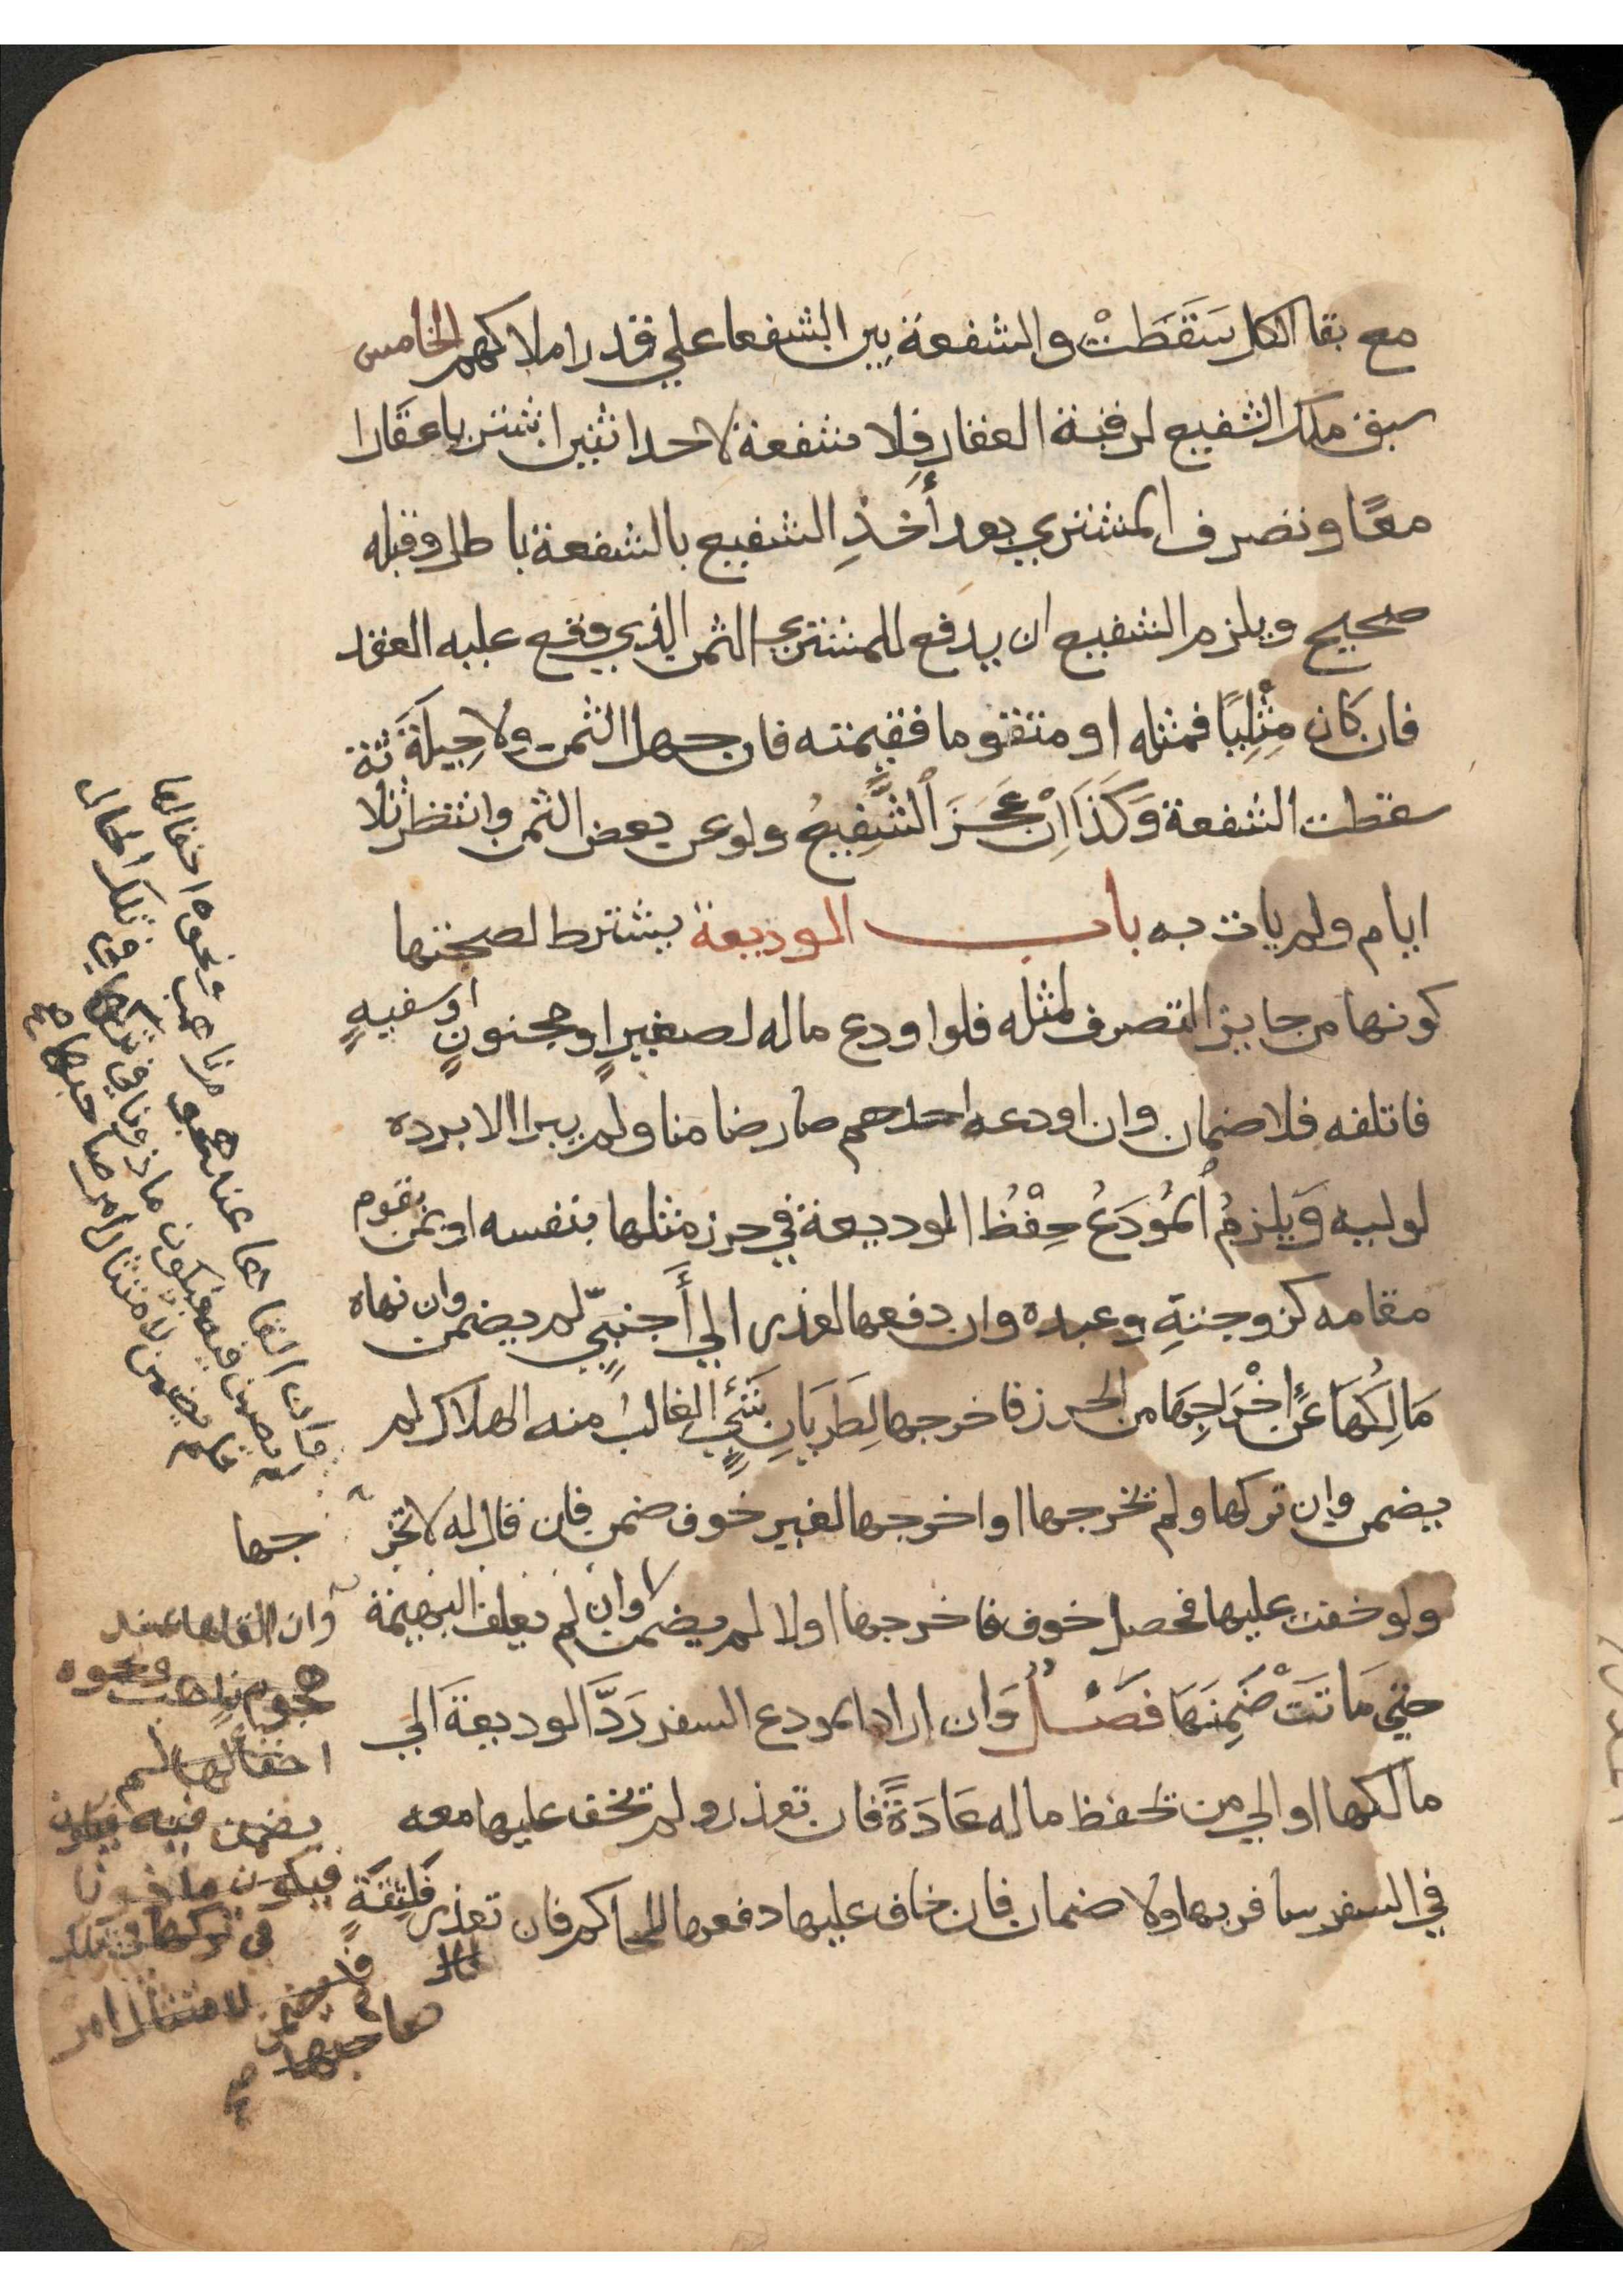 مع بقا الكل سَقَطَتْ والشفعة بين الشفعا علي قدر املاكهم الخامس
سبق ملك الشفيع لرقبة العقار فلا شفعة لاحد اثنين اشتريا عقارا
معًا وتصرف المشتري بعد أَخذِ الشفيع بالشفعة باطل وقبله
صحيح ويلزم الشفيع ان يدفع للمشتري الثمن الذي وقع عليه العقد
فان كَان مِثْلِيًا فمثله او متقوما فقيمته فان جهل الثمن ولا حِيلَةَ
سقطت الشفعة وَكَذَا اِنْ عَجَزَ الشَّفِيعُ ولو عن بعض الثمن وانتظر ثلا
ايام ولم يات به باب الوديعة يشترط لصحتها
كونها من جايز التصرف لمثله فلو اودع ماله لصغيرٍ او مجنونٍ او سفيهٍ
فاتلفه فلا ضمان وان اودعه احدهم صار ضامنا ولم يبرا الا برده
لوليه وَيلزمُ المُودَعُ حِفْظُ الوديعة في حرز مثلها بنفسه او بمن يقوم
مقامه كزوجتةِ وعبده وان دفعها لعذر الي أَجنبِيٍّ لم يضمن وان نهاه
مَالِكُهَا عَن اِخْرَاجِهَا من الحرز فاخرجها لِطَرَيَانِ شَئٍ الغالبُ منه الهلاك لم
يضمن وان تركها ولم يخرجها او اخرجها لغير خوف ضمن فان قال له لا تخر
جها
ولو خفت عليها فحصل خوف فاخرجها اولا لم يضمن وان لم يعلف البهيمة
حتي مَاتَتْ ضَمِنَهَا فَصْلٌ وَان اراد المودع السفر رَدَّ الوديعةَ الي
مالكها او الي من يحفظ ماله عَادَةً فان تعذر ولم يخف عليها معه
في السفر سافر بها ولا ضمان فان خاف عليها دفعها للحاكم فان تعذر فَلِثِقَةٍ
وان القاها عند هجوم ناهب ونحوه اخفا لها
لم يضمن فيه فيكون ماذونا في تركها في تلك الحال
فلم يضمن لامتثال امر صاحبها صح
وان القاها عند
هجوم ناهب ونحوه
اخفا لها لم
يضمن فيه فيكون
فيكون ماذونا
في تركها في تلك
فلم يضمن لامتثال امر
صاحبها
صح